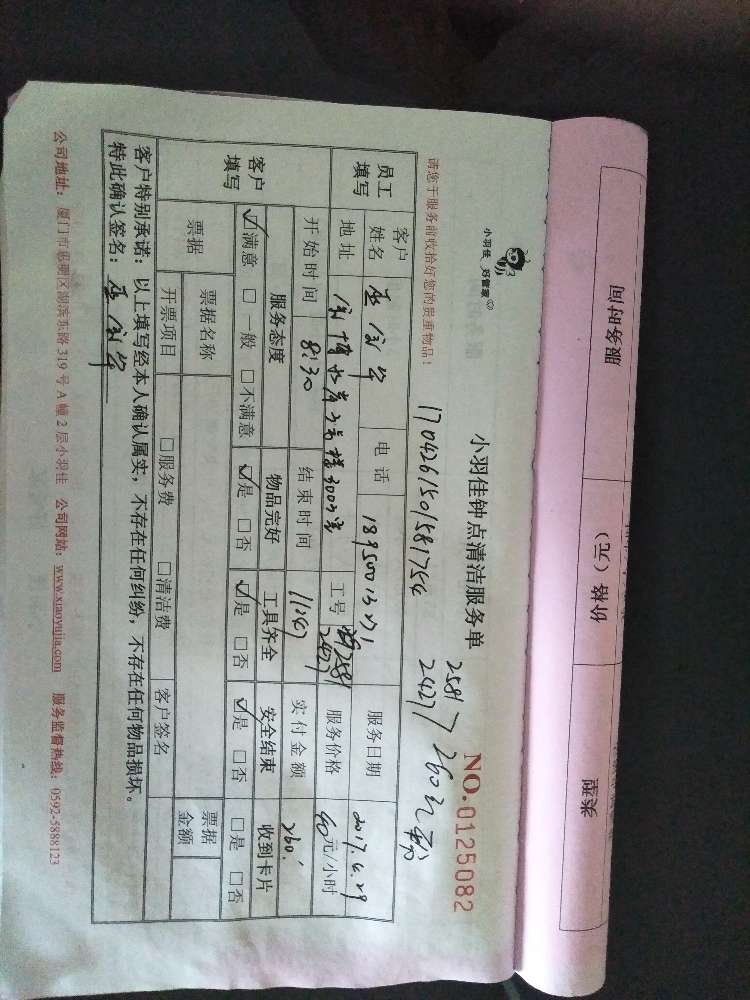 服务时间 价格（元） 类型
小羽佳 好管家
小羽佳钟点清洁服务单
NO.0125082
请您于服务前收拾好您的贵重物品！
1704261501581754
2581
2427
260元
员工填写
客户姓名 电话 18950013271 服务日期 2017.4.29
地址 3号楼3003室 工号 2581 2427 服务价格 40元/小时
开始时间 8:30 结束时间 11:47 实付金额 260
客户填写
服务态度 物品完好 工具齐全 安全结束 收到卡片
☑满意 □一般 □不满意 ☑是 □否 ☑是 □否 ☑是 □否 □是 □否
票据 票据名称 票据金额
开票项目 □服务费 □清洁费 客户签名
客户特别承诺：以上填写经本人确认属实，不存在任何纠纷，不存在任何物品损坏。
特此确认签名：
公司地址：厦门市思明区湖滨东路319号A幢2层小羽佳 公司网站：www.xiaoyujia.com 服务监督热线：0592-5888123